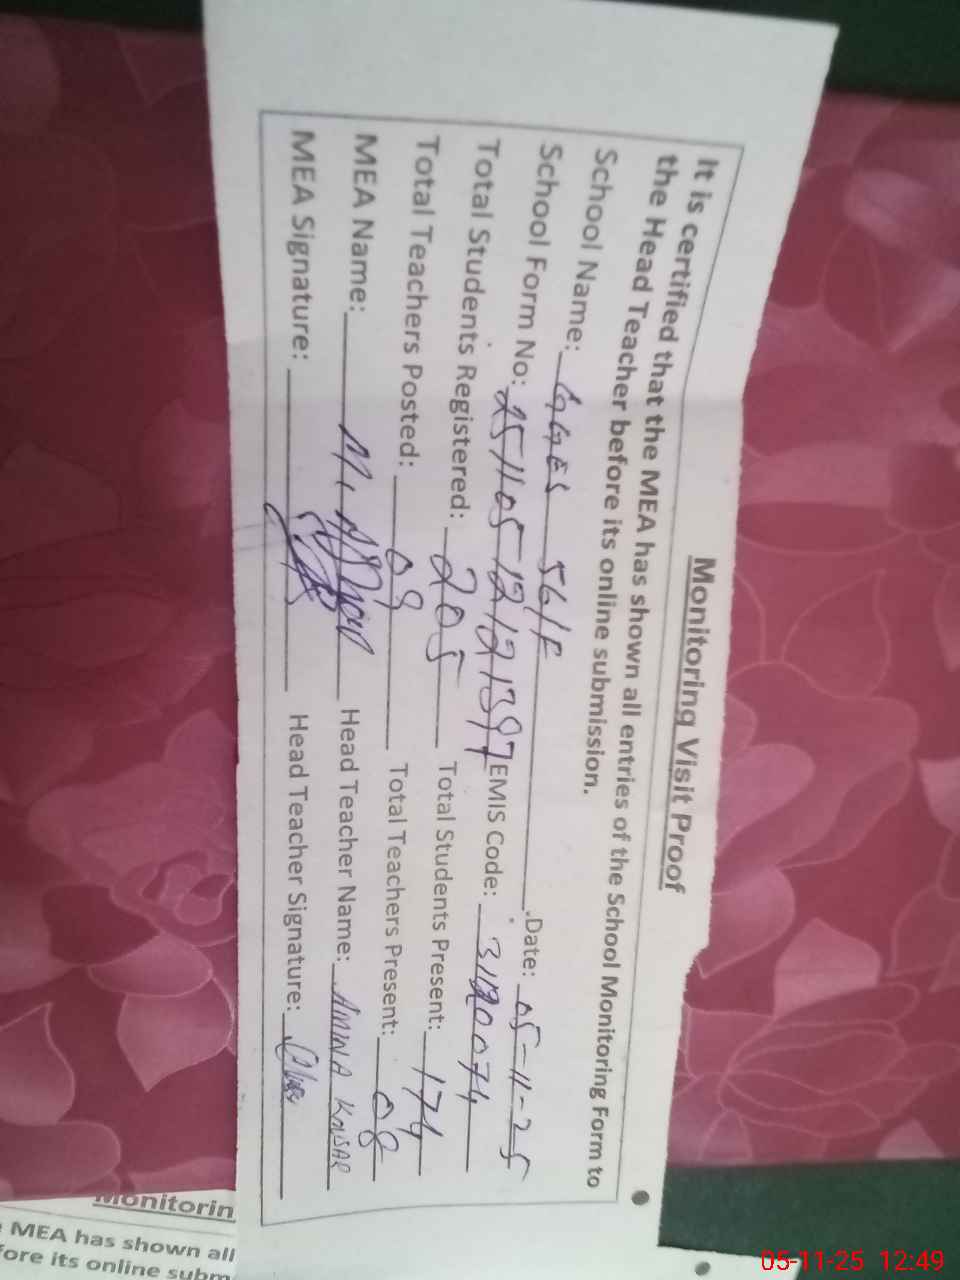 Monitoring Visit Proof
It is certified that the MEA has shown all entries of the School Monitoring Form to
the Head Teacher before its online submission.
School Name: GGES 561/F Date: 05-11-25
School Form No: EMIS Code: 31120074
Total Students Registered: 205 Total Students Present: 174
Total Teachers Posted: 09 Total Teachers Present: 08
MEA Name: M. Head Teacher Name: AMINA KAUSAR
MEA Signature: Head Teacher Signature:
Monitorin
MEA has shown all
fore its online subm
05-11-25 12:49